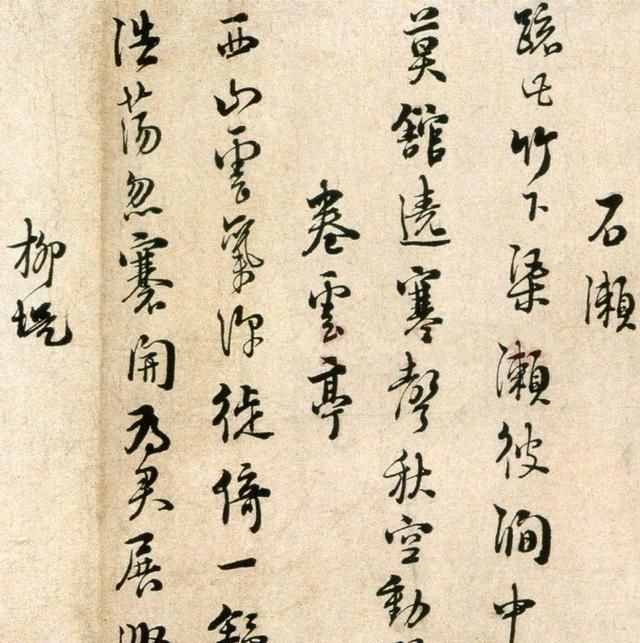 石瀨
疏此竹下渠瀨彼澗中
莫館遶寒聲秋空動
卷雲亭
西山雲氣深徙倚一舒
浩蕩忽褰開為君展
柳堤